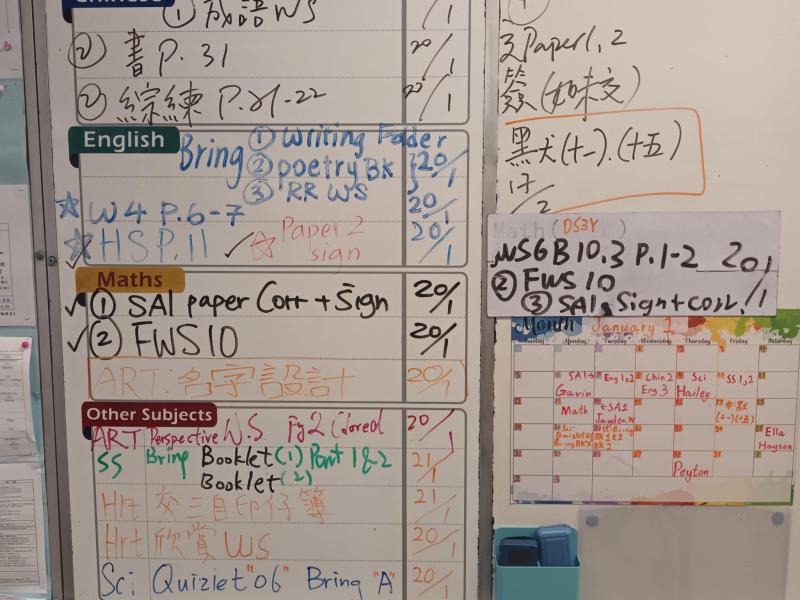 Chinese
① 成語 WS
/1
② 書 P. 31
20/1
② 綜練 P.21-22
20/1
English
Bring ① Writing Folder
② poetry BK
③ RR WS
20/1
☆ W4 P.6-7
20/1
☆ HS P.11 ✓ ☆ Paper 2 sign
20/1
Maths
✓ ① SA1 paper Corr + Sign
20/1
✓ ② FWS 10
20/1
ART: 名字設計
20/1
Other Subjects
ART Perspective W.S. Pg2 Colored
20/1
SS Bring Booklet (1) Part 1&2
Booklet (2)
21/1
Hrt 交三自印仔簿
21/1
Hrt 欣賞 WS
20/1
Sci Quizlet "06" Bring "A"
20/1
Paper 1, 2
簽 (如未交)
黑犬(十一).(十五)
17/2
DS3Y
WS6B 10.3 P.1-2 20/1
② FWS 10
③ SA1 Sign + corr.
Month January 1
SA1→ Gavin
Eng 1,2
Chin 2 Eng 3
Sci Hailey
SS 1,2
Math
←SA1 Jayden.W
(十一)(十五)
Ella Hayson
Peyton